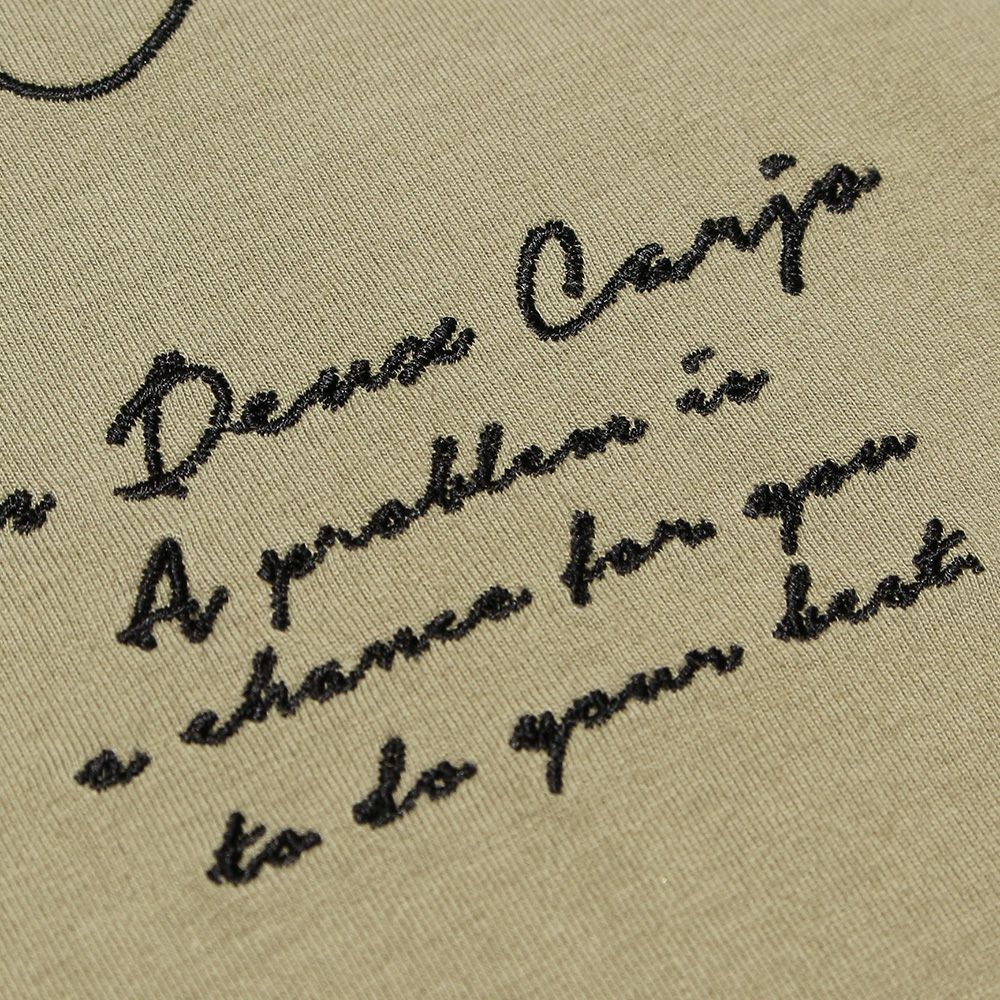 Deux Canjo
A problem is
a chance for you
to do your best